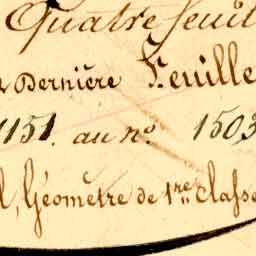 Quatre feuil
Dernière Feuille
1151. au nº. 1503
l, Géomètre de 1re. Classe